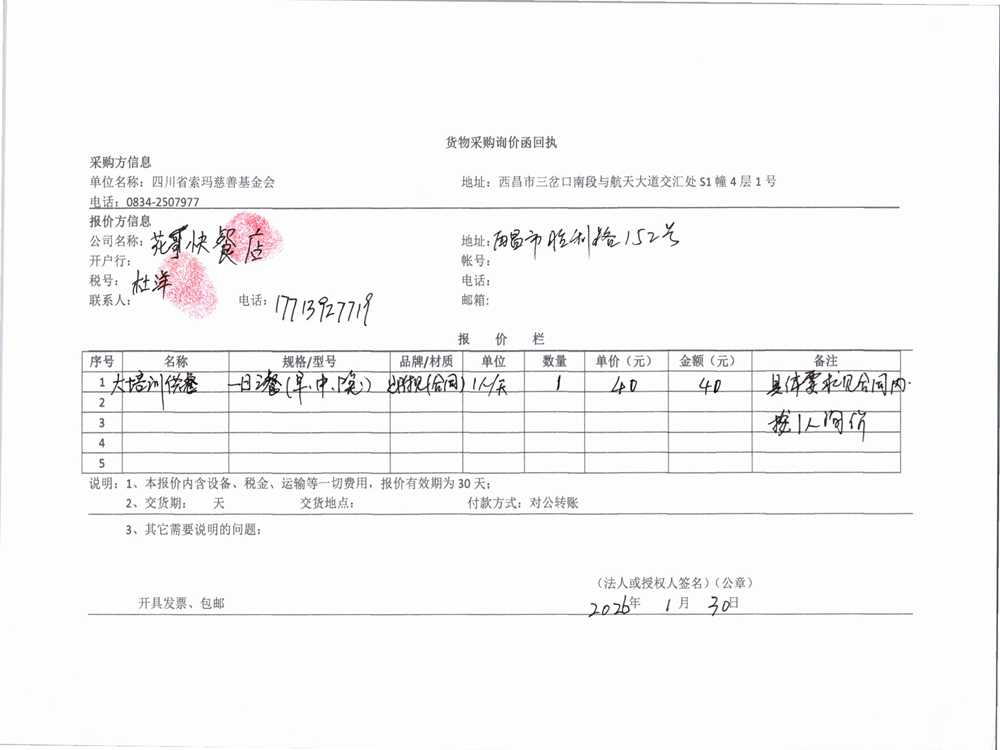 货物采购询价函回执
采购方信息
单位名称：四川省索玛慈善基金会 地址：西昌市三岔口南段与航天大道交汇处 S1 幢 4 层 1 号
电话：0834-2507977
报价方信息
公司名称：苑哥快餐店 地址：西昌市胜利路152号
开户行： 帐号：
税号： 电话：
联系人：杜洋 电话：17713927719 邮箱：
报 价 栏
序号 名称 规格/型号 品牌/材质 单位 数量 单价（元） 金额（元） 备注
1 大培训供餐 一日三餐(早、中、晚) (合同) 1人/天 1 40 40 具体要求见合同内.
2
3 按1人询价
4
5
说明：1、本报价内含设备、税金、运输等一切费用，报价有效期为 30 天；
2、交货期： 天 交货地点： 付款方式：对公转账
3、其它需要说明的问题：
（法人或授权人签名）（公章）
开具发票、包邮 2026年 1月 30日